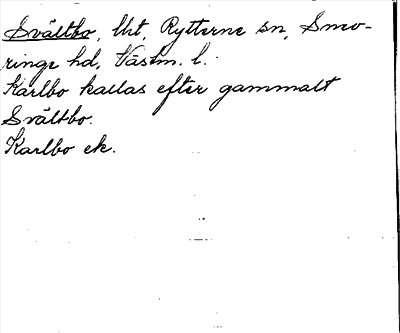 Svältbo, lht, Rytterne sn, Snev-
ringe hd, Västm. l.
Karlbo kallas efter gammalt
Svältbo.
Karlbo ek.